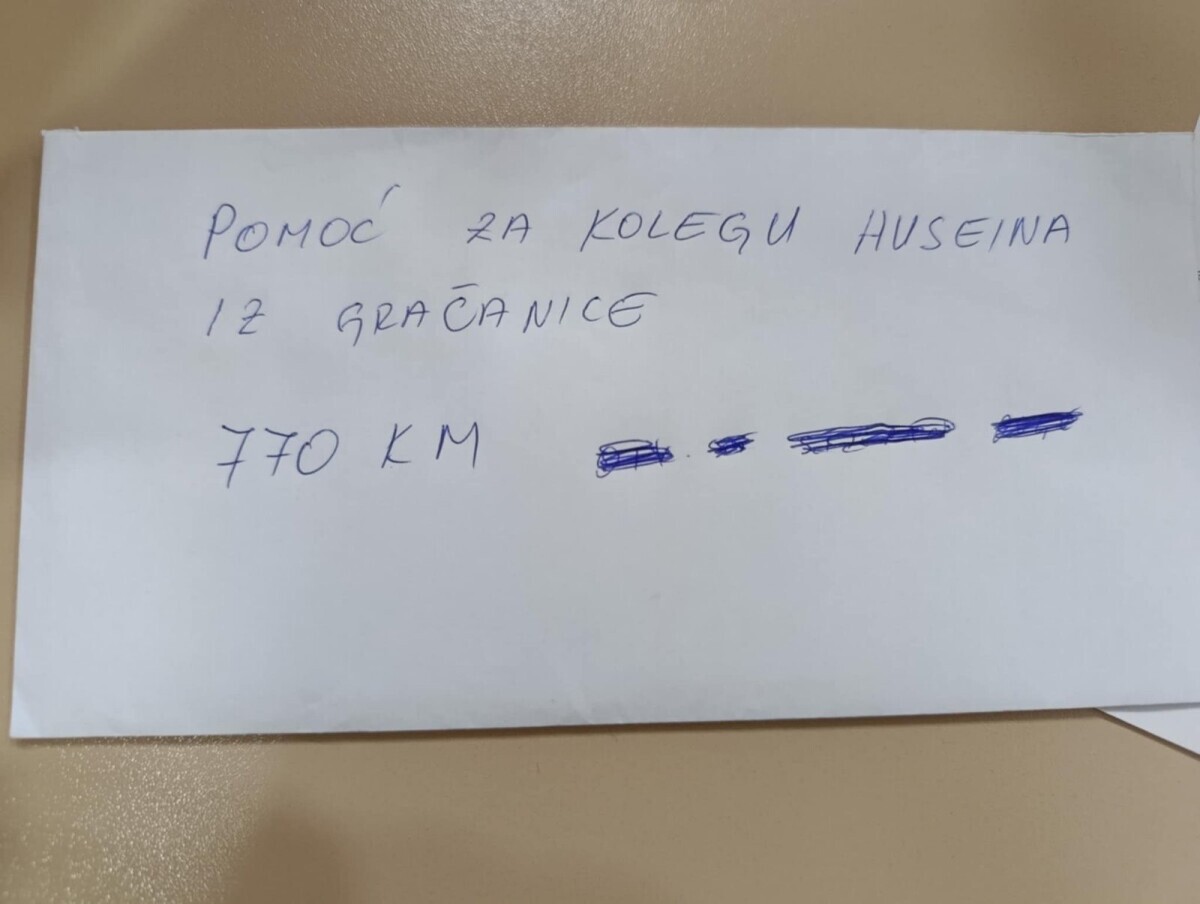 POMOĆ ZA KOLEGU HUSEINA
IZ GRAČANICE
770 KM